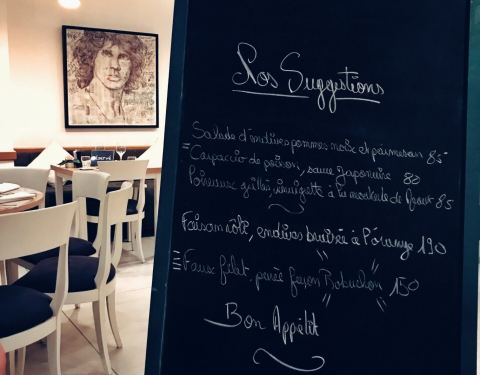 Nos Suggestions
Salade d'endives pommes noix et parmesan 85
Carpaccio de poisson, sauce Japonaise 80
Poireaux grillés, vinaigrette à la moutarde de 85
Faison rôti, endives braisée à l'orange 190
Faux filet, purée façon Robuchon 150
Bon Appétit